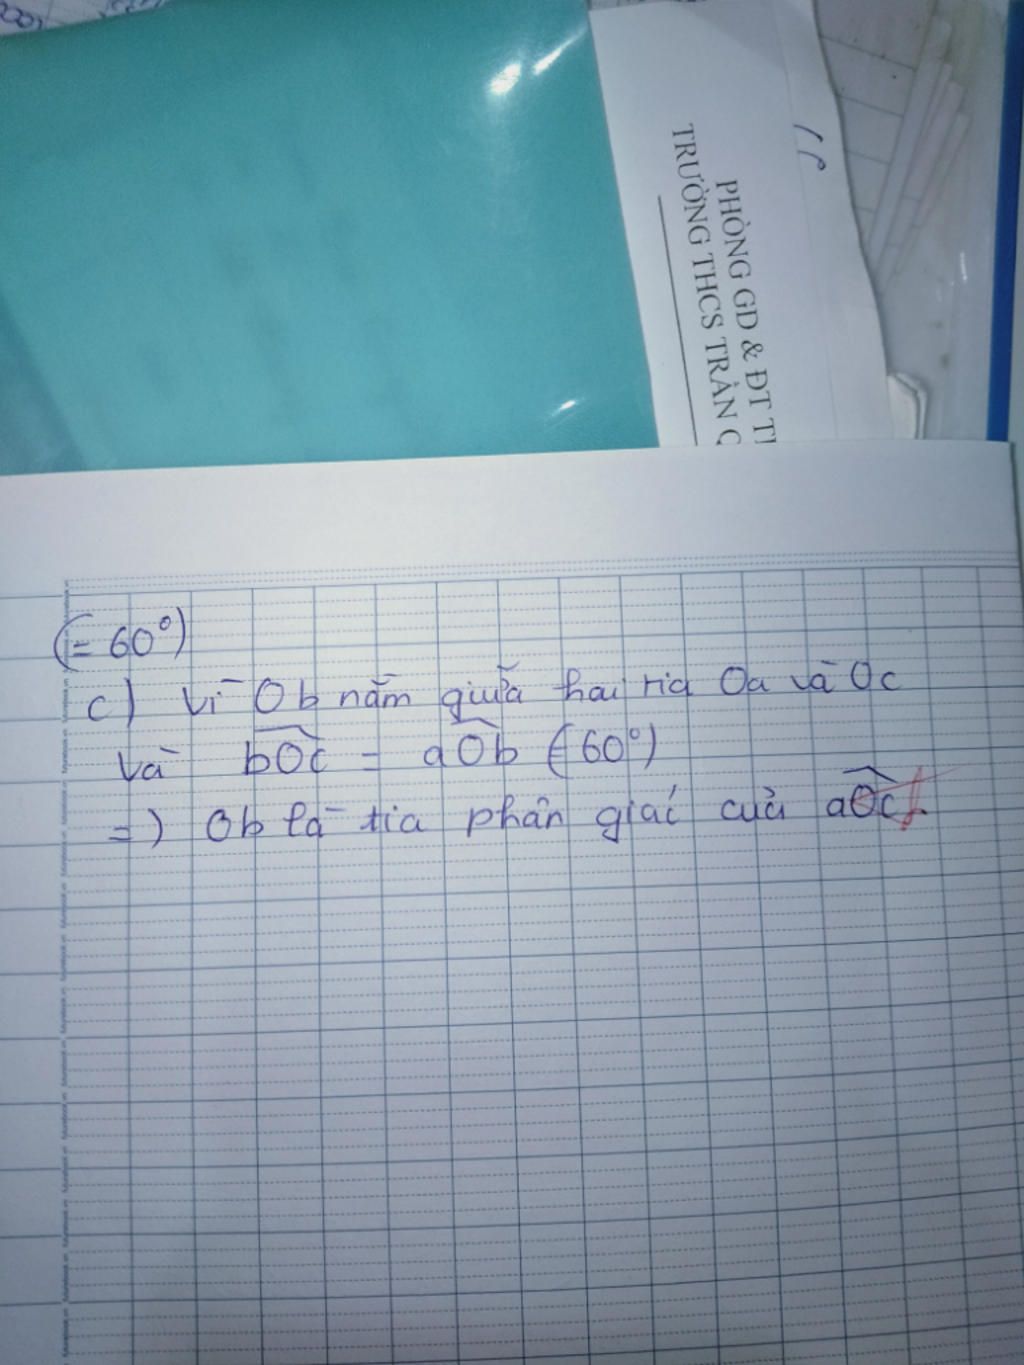 PHÒNG GD & ĐT T
TRƯỜNG THCS TRẦN
(= 60°)
c) Vì Ob nằm giữa hai tia Oa và Oc
Và bOc = aOb (= 60°)
=) Ob là tia phân giác của aOc